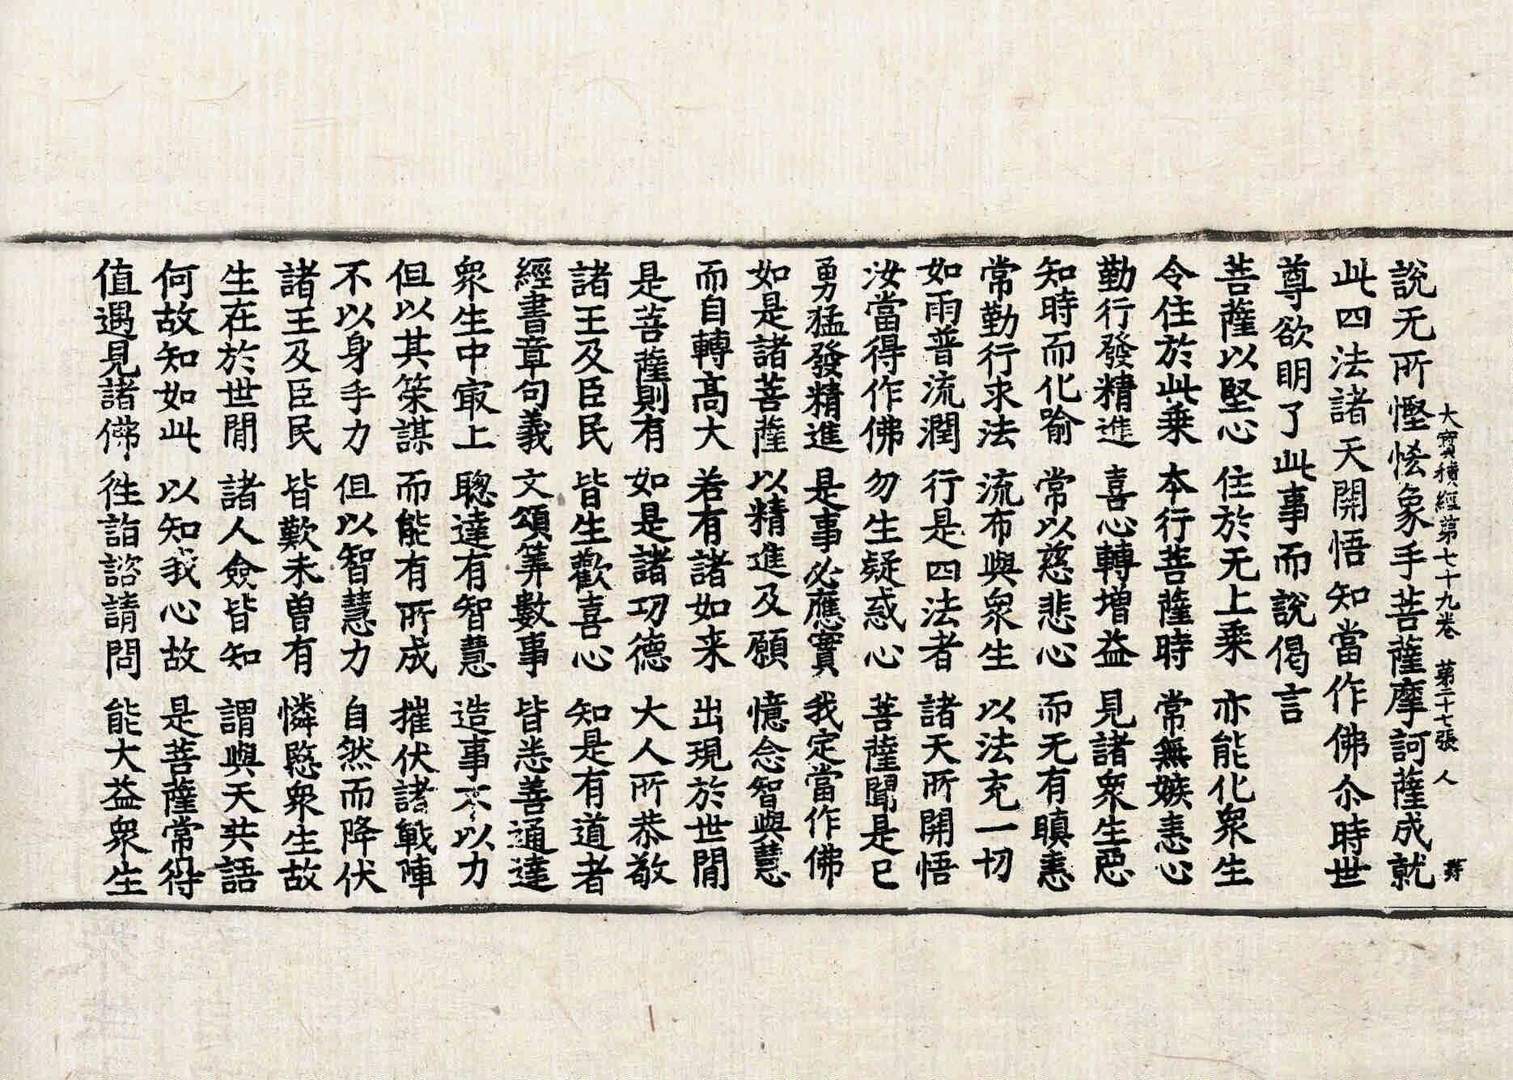 大寶積經第七十九卷 第二十七張 人
說无所慳悋象手菩薩摩訶薩成就
此四法諸天開悟知當作佛尒時世
尊欲明了此事而說偈言
菩薩以堅心 住於无上乘 亦能化衆生
令住於此乘 本行菩薩時 常無嫉恚心
勤行發精進 喜心轉增益 見諸衆生惡
知時而化喻 常以慈悲心 而无有瞋恚
常勤行求法 流布與衆生 以法充一切
如雨普流潤 行是四法者 諸天所開悟
汝當得作佛 勿生疑惑心 菩薩聞是已
勇猛發精進 是事必應實 我定當作佛
如是諸菩薩 以精進及願 憶念智與慧
而自轉高大 若有諸如来 出現於世閒
是菩薩則有 如是諸功德 大人所恭敬
諸王及臣民 皆生歡喜心 知是有道者
經書章句義 文頌筭數事 皆悉善通達
衆生中㝡上 聰達有智慧 造事不以力
但以其策謀 而能有所成 摧伏諸戰陣
不以身手力 但以智慧力 自然而降伏
諸王及臣民 皆歎未曽有 憐愍衆生故
生在於世閒 諸人僉皆知 謂與天共語
何故知如此 以知我心故 是菩薩常得
值遇見諸佛 往詣諮請問 能大益衆生